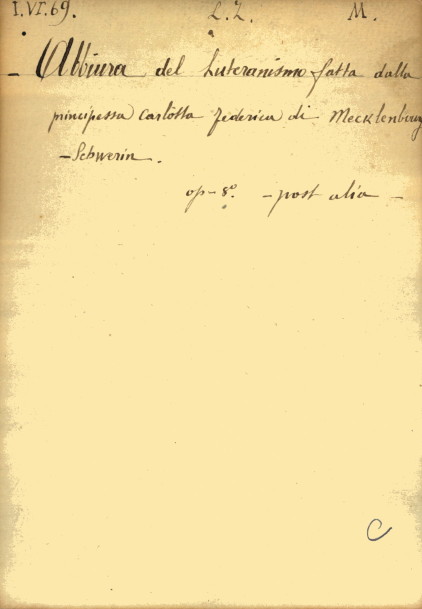 I.VI.69. L.Z. M.
- Abbiura del Luteranismo fatta dalla
principessa Carlotta Federica di Mecklenburg
-Schwerin.
op-8º. - post alia -
C